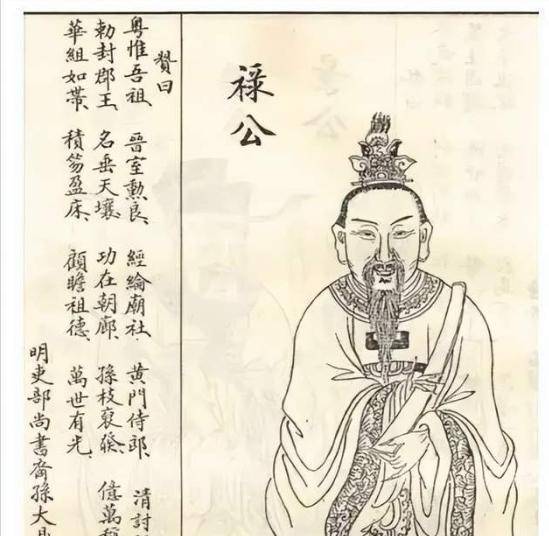 禄公
贊曰
粵惟吾祖、晉室勲良、經綸廟社、黃門侍郎、清討
勅封郡王、名垂天壤、功在朝廊、孫枝 億萬
華組如帶、積笏盈床、顧瞻祖德、萬世有光、
明吏部尚書裔孫大